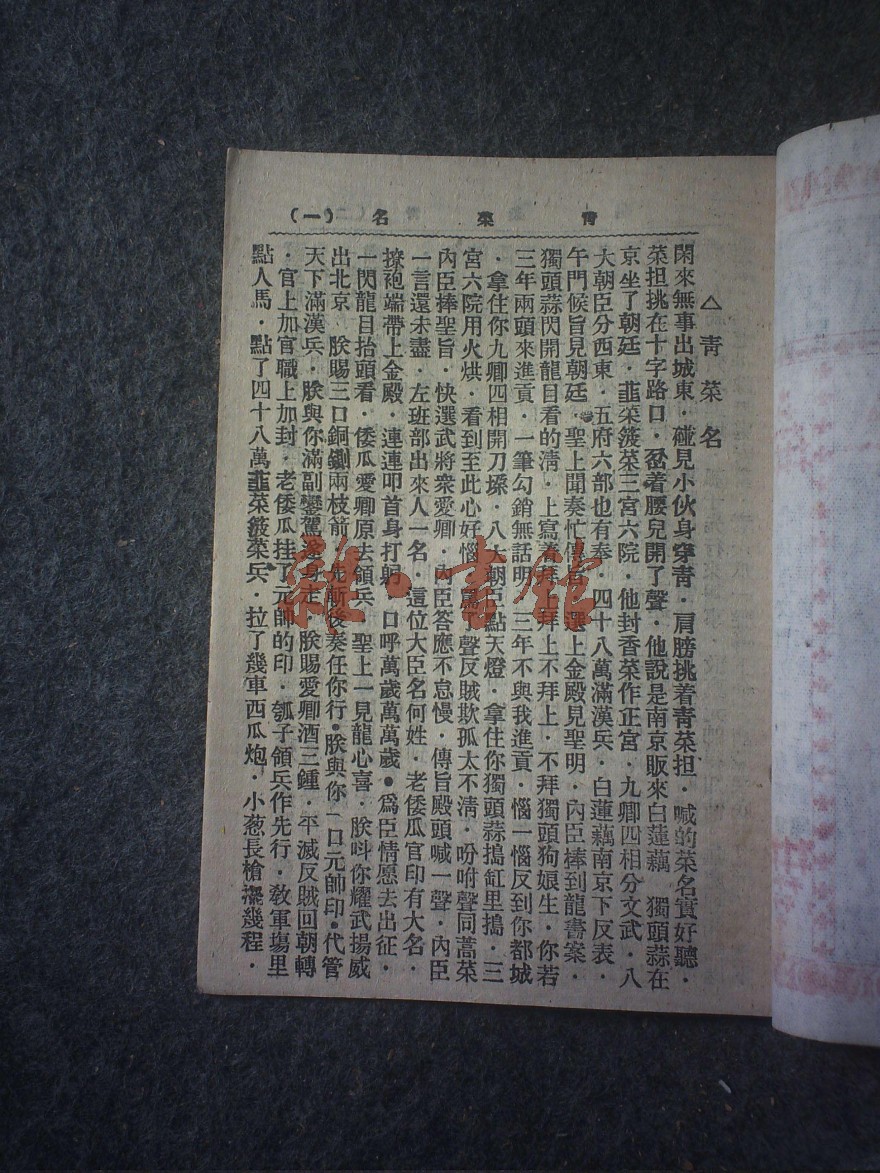 青菜名(一)
△青菜名
閑來無事出城東·碰見小伙身穿青·肩膀挑着靑菜担·喊的菜名實好聽·
菜担挑在十字路口·岔着腰兒開了聲·他說是南京販來白蓮藕 獨頭蒜在
京坐了朝廷·韮菜菠菜三宮六院·他封香菜作正宮·九卿四相分文武·八
大朝臣分西東·五府六部也有奏·四十八萬滿漢兵·白蓮藕南京下反表·
午門候旨見朝廷·聖上聞奏忙傳旨·選上金殿見聖明·內臣棒到龍書案·
獨頭蒜閃開龍目看的淸·上寫着拜上拜上不拜上·不拜獨頭狗娘生·你若
三年兩頭來進貢·一筆勾銷無話明·三年不與我進貢·惱一惱反到你都城
·拿住你九卿四相開刀·八大朝臣點天燈·拿住你獨頭蒜搗缸里搗·三
宮六院用火烘·看到至此心好惱·罵了聲反賊欺孤太不清·吩咐聲同蒿菜
內臣棒聖旨·快選武將衆愛卿·內臣答應不怠慢·傳旨殿頭喊一聲·內臣
一言還未盡·左班部出來人一名·這位大臣名何姓·老倭瓜官印有大名·
撩袍端帶上金殿·連連叩首身打躬·口呼萬歲萬萬歲●爲臣情愿去出征·
一閃龍目抬頭看·倭瓜愛卿原去領兵·聖上一見龍心喜·朕呌你耀武揚威
出北京 朕賜三口銅鍘兩枝箭·先斬後奏任你行●朕與你一口元帥印·代管
天下滿漢兵·朕與你滿副鑾駕隨身走·朕賜愛卿酒三鍾·平滅反賊回朝轉
·官上加官職上加封·老倭瓜挂了元帥的印·瓠子領兵作先行·敎軍塲里
點人馬·點了四十八萬韮菜菠菜兵·拉了幾車西瓜炮·小葱長槍擺幾程·
雜·書館